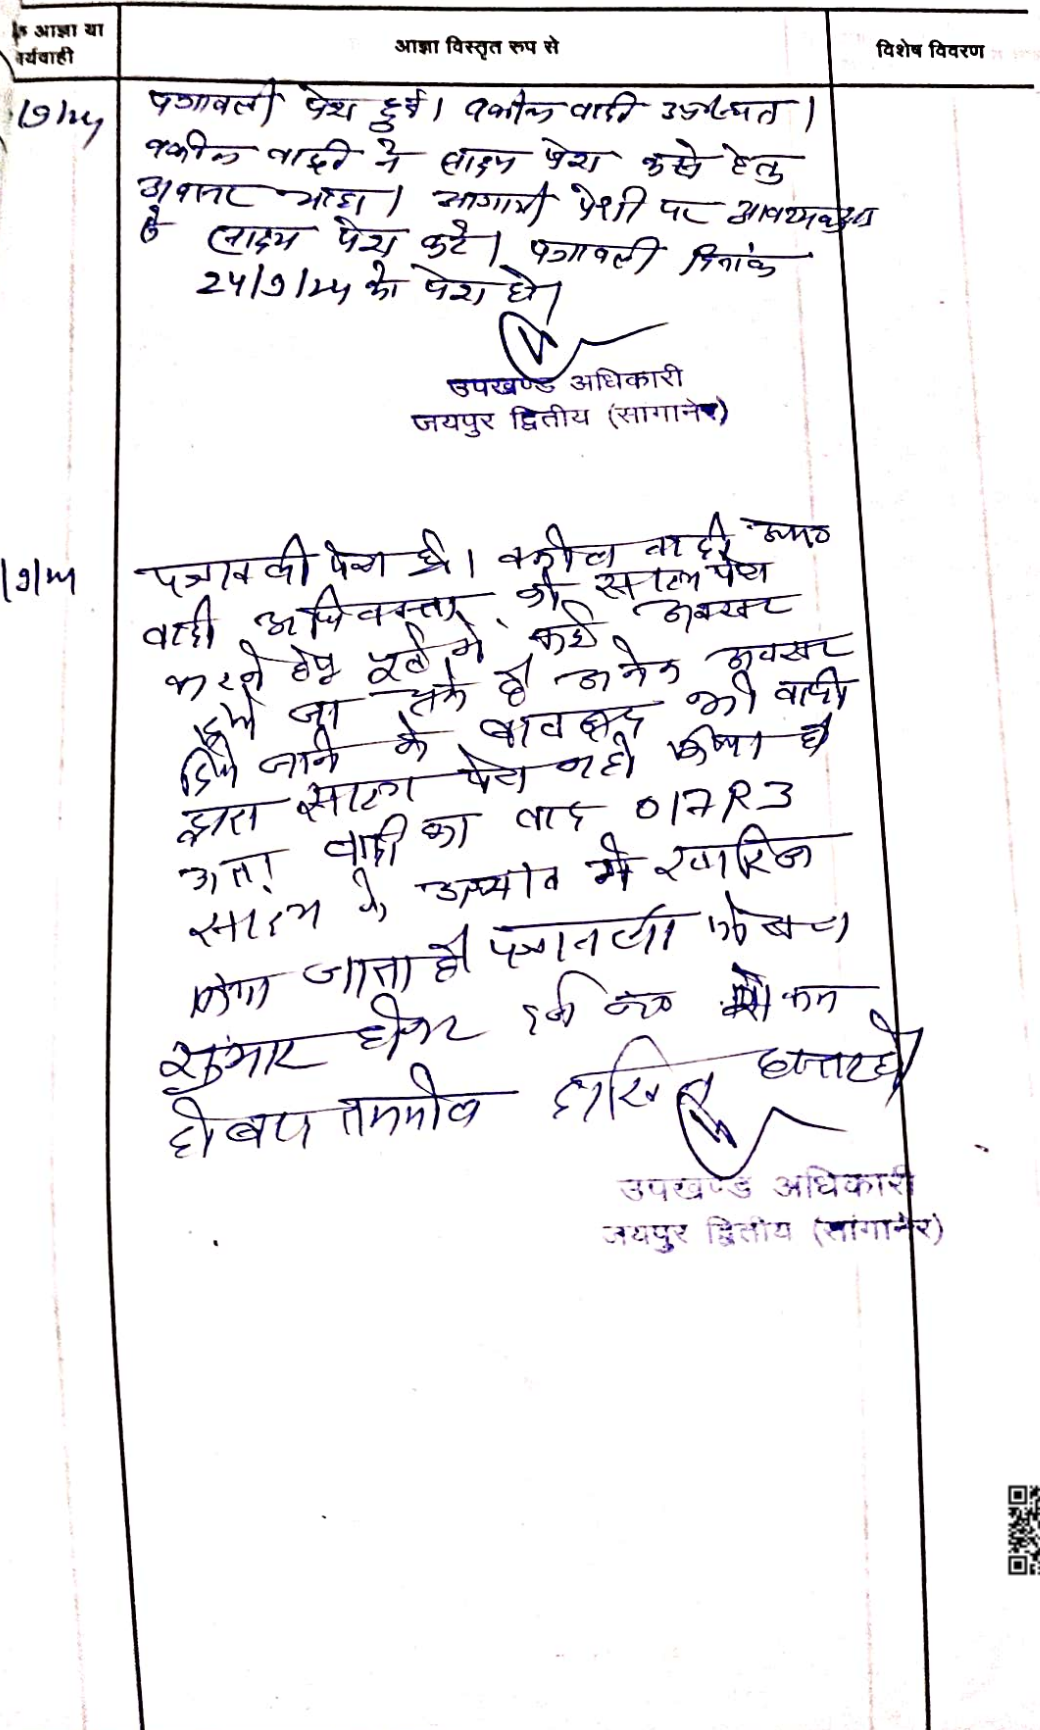 आज्ञा या
र्यवाही
आज्ञा विस्तृत रुप से
विशेष विवरण
पत्रावली पेश हुई। वकील वादी उपस्थित।
वकील वादी ने साक्ष्य पेश करने हेतु
अवसर चाहा। आगामी पेशी पर आवश्यक रूप
से साक्ष्य पेश करें। पत्रावली दिनांक
24/9/24 को पेश हो।
उपखण्ड अधिकारी
जयपुर द्वितीय (सांगानेर)
पत्रावली पेश हुई। वकील वादी उप०
वादी अधिवक्ता को साक्ष्य पेश
करने हेतु पूर्व में कई अवसर
दिये जा चुके हैं अनेक अवसर
दिये जाने के बावजूद भी वादी
द्वारा साक्ष्य पेश नहीं किया है
अतः वादी का वाद O17R3
साक्ष्य के अभाव में खारिज
किया जाता है पत्रावली फैसल
शुमार होकर नम्बर से कम
हो बाद तकमील दाखिल दफ्तर हो
उपखण्ड अधिकारी
जयपुर द्वितीय (सांगानेर)